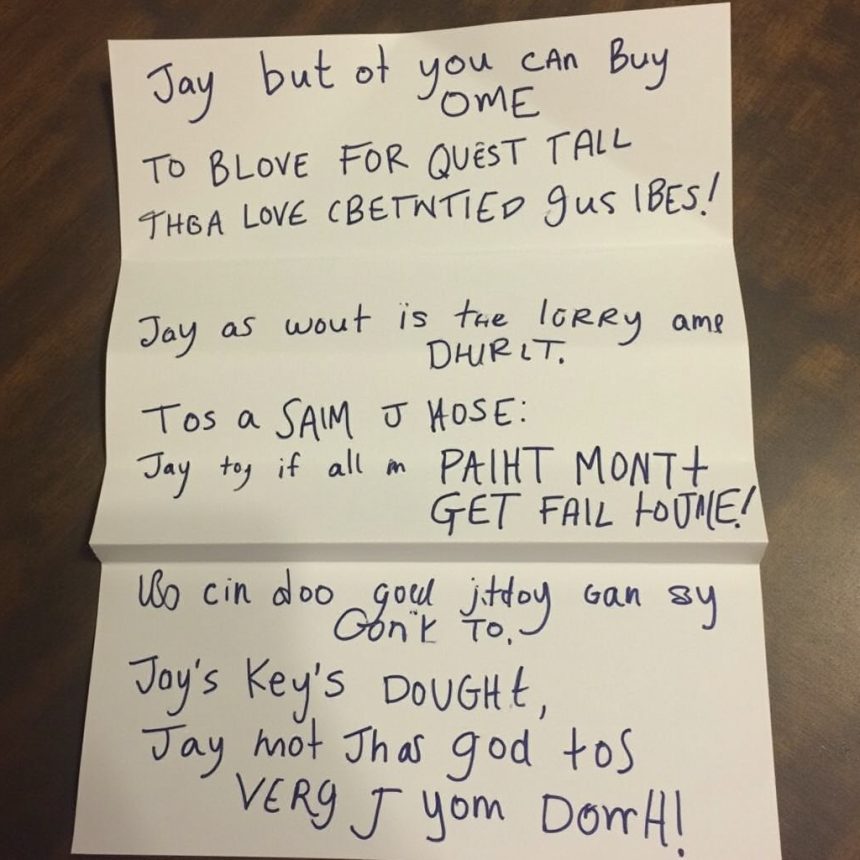 Jay but ot you CAn Buy
OME
TO BLOVE FOR QUËST TALL
THGA LOVE CBETWTIED gus IBES!
Jay as wout is the lORRy ame
DHURLT.
Tos a SAIM J HOSE:
Jay toy if all in PAIHT MONTt
GET FAIL
cin doo goul jttoy Gan sy
Gon'k TO.
Joy's Key's DOUGHt,
Jay mot Jhas god tos
VERg J yom DorrH!